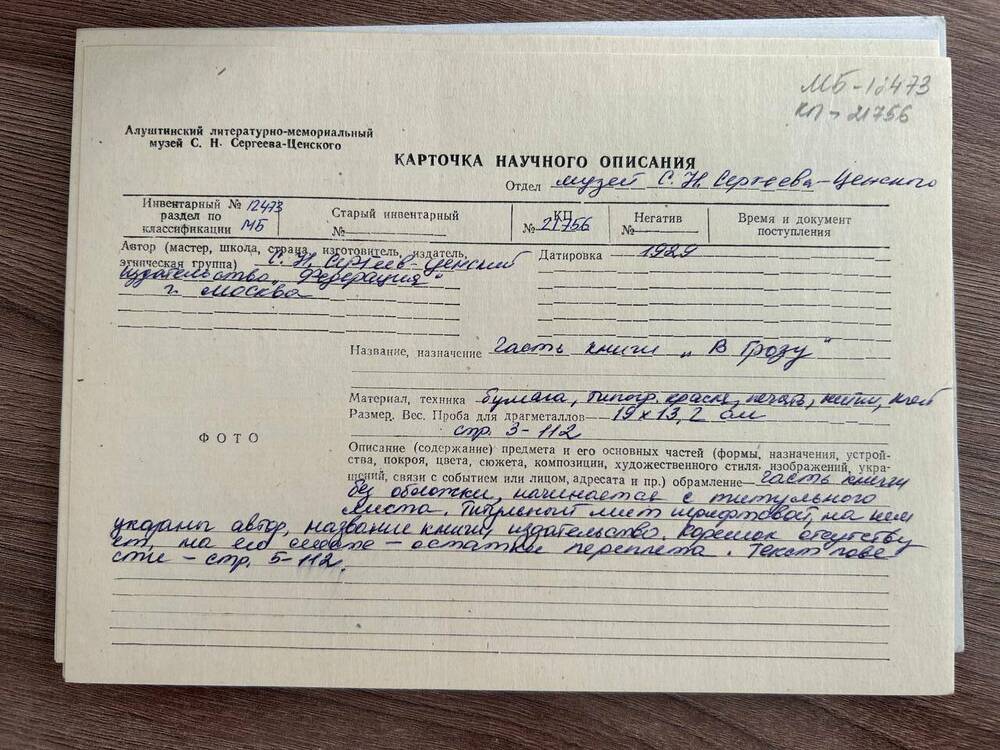 МБ-12473
КП-21756
Алуштинский литературно-мемориальный
музей С. Н. Сергеева-Ценского
КАРТОЧКА НАУЧНОГО ОПИСАНИЯ
Отдел музей С. Н. Сергеева-Ценского
Инвентарный № 12473
раздел по
классификации МБ
Старый инвентарный
№
КП
№ 21756
Негатив
№
Время и документ
поступления
Автор (мастер, школа, страна, изготовитель, издатель,
этническая группа) С. Н. Сергеев-Ценский
издательство „Федерация“
г. Москва
Датировка 1929
Название, назначение часть книги „В грозу“
Материал, техника бумага, типогр. краска, печать, нитки, клей
Размер. Вес. Проба для драгметаллов 19 х 13,2 см
стр. 3-112
ФОТО
Описание (содержание) предмета и его основных частей (формы, назначения, устрой-
ства, покроя, цвета, сюжета, композиции, художественного стиля, изображений, укра-
шений, связи с событием или лицом, адресата и пр.) обрамление часть книги
без обложки, начинается с титульного
листа. Титульный лист шрифтовой, на нем
указаны автор, название книги, издательство. Корешок отсутству
ет, на его месте - остатки переплета. Текст пове
сти - стр. 5-112.